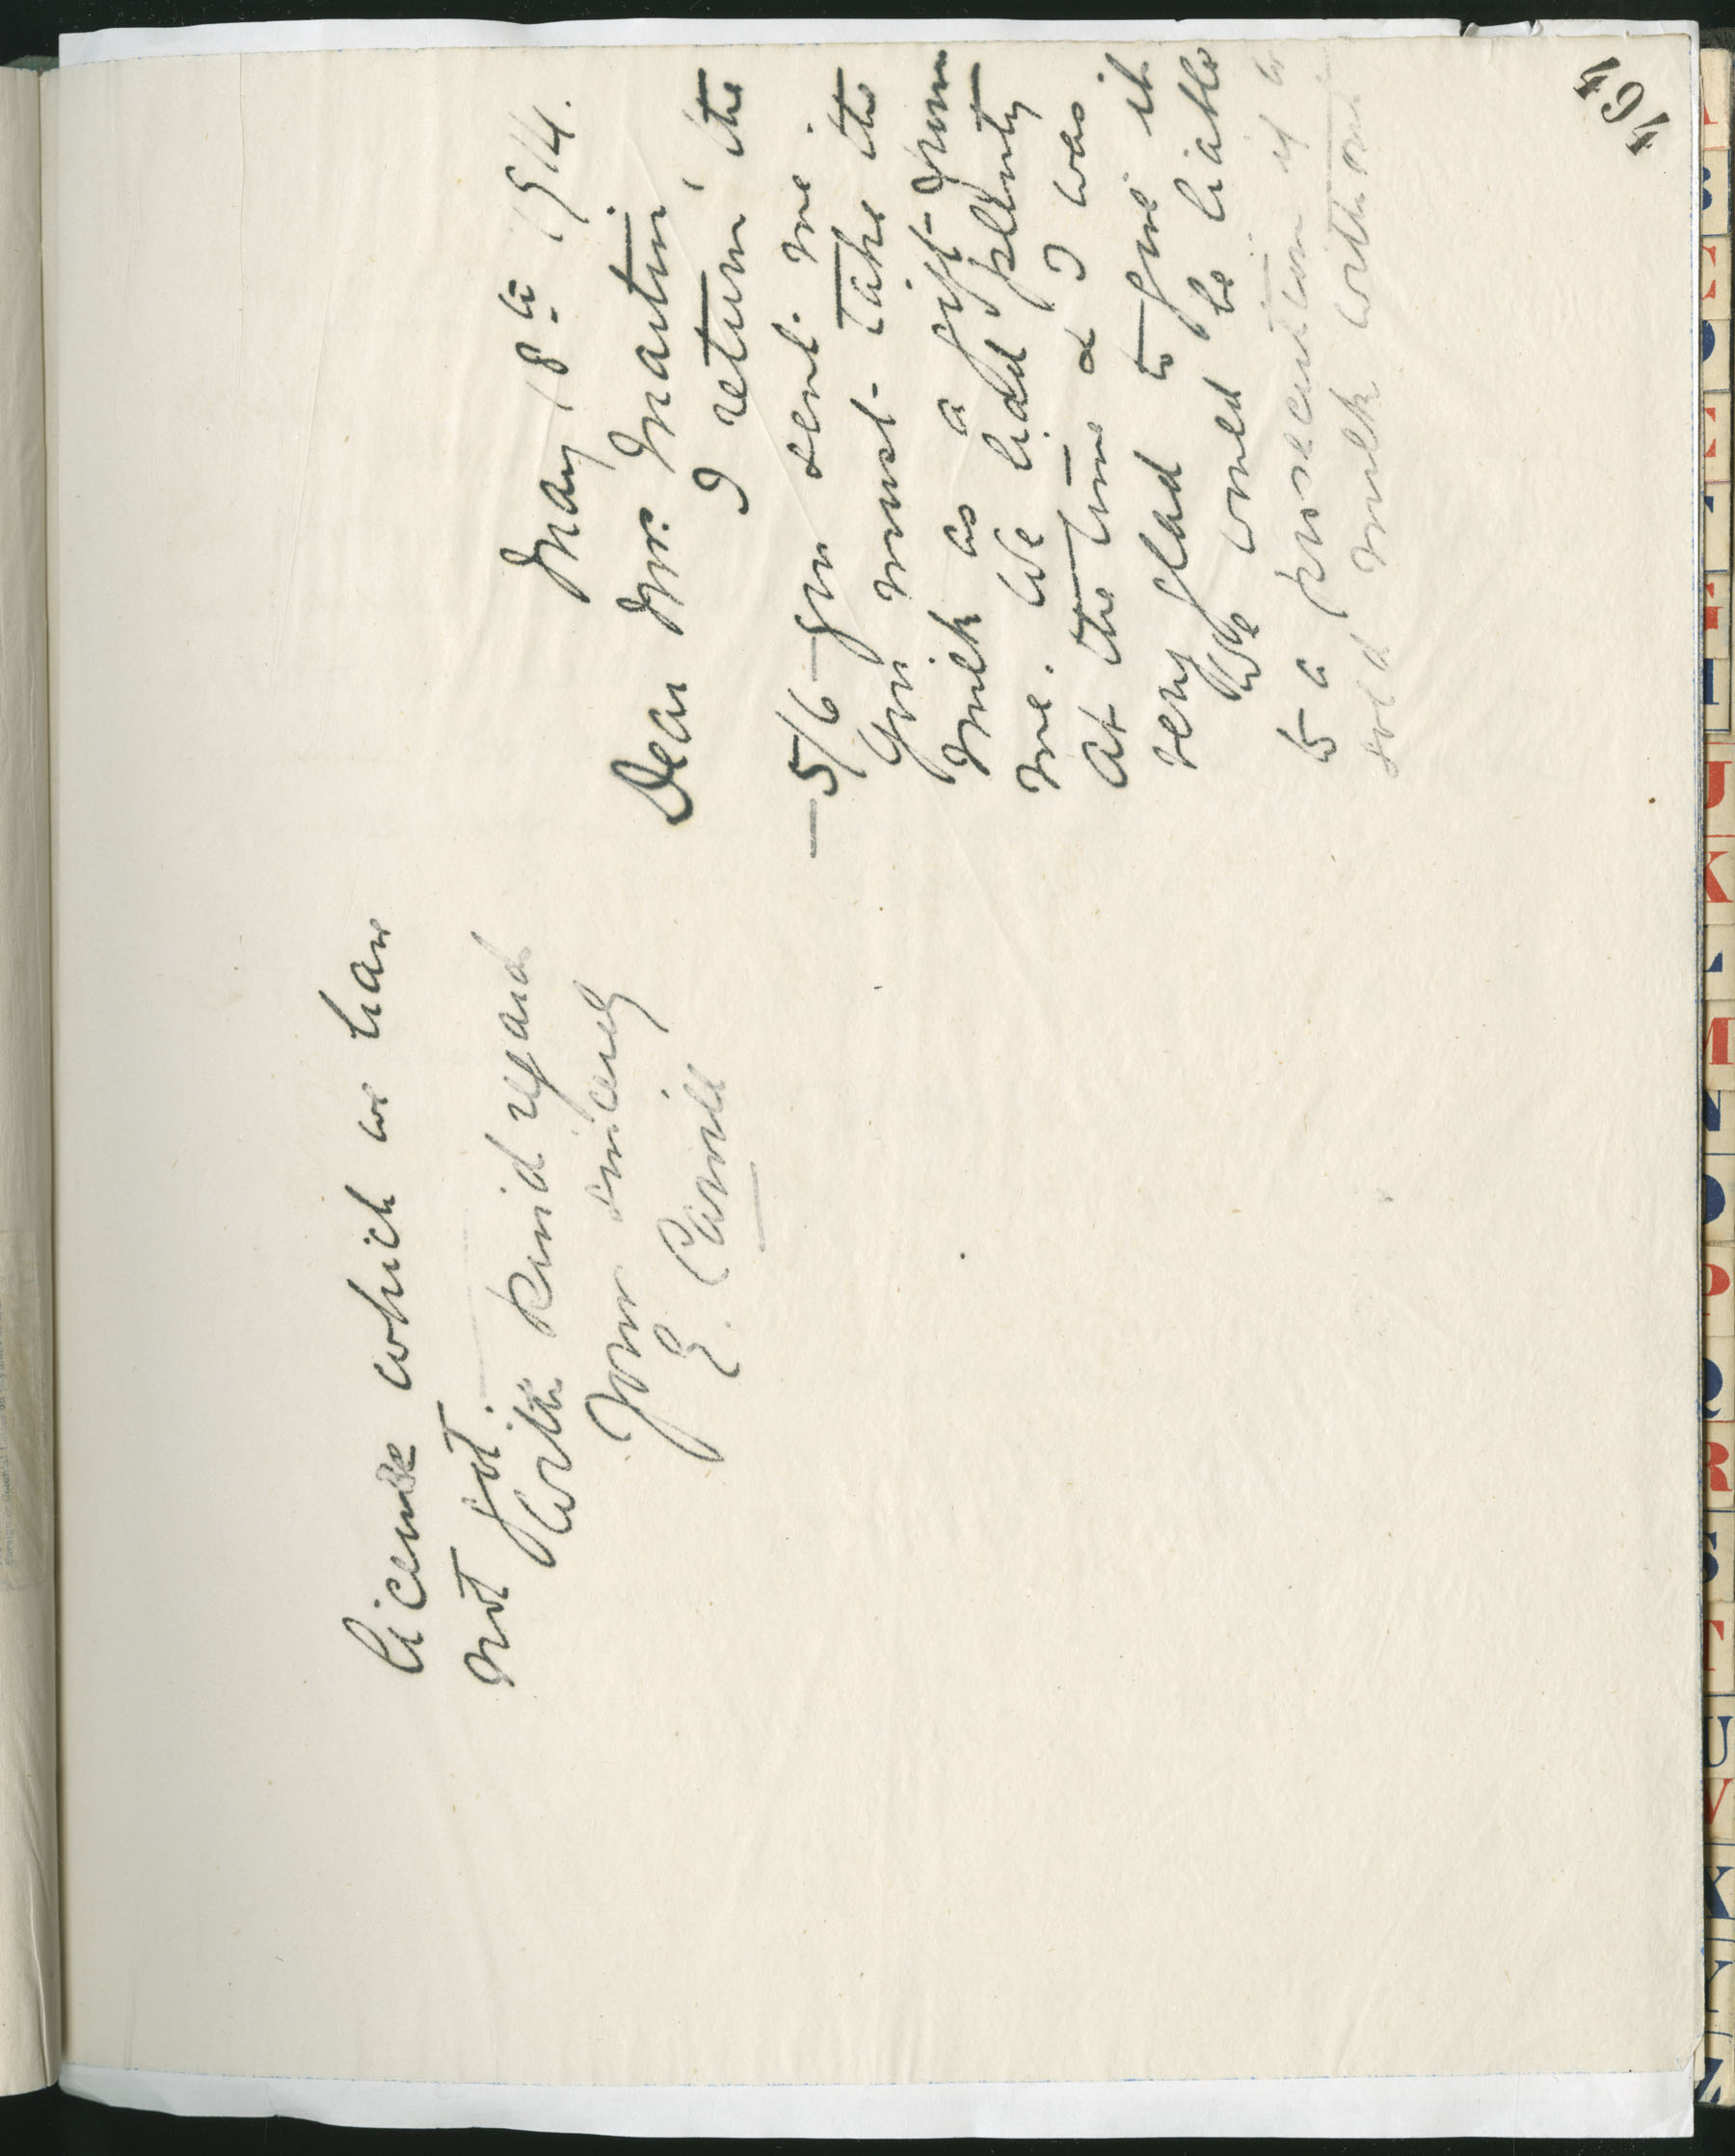 494
May 18th 1914.
Dear Mr. Martin,
I return the
5/6 you sent me.
You must take the
milk as a gift from
me. We had plenty
at the time & I was
very glad to give it.
We would be liable
to a prosecution if we
sold milk without a
license which we have
not got.
With kind regards
Yours sincerely
E.